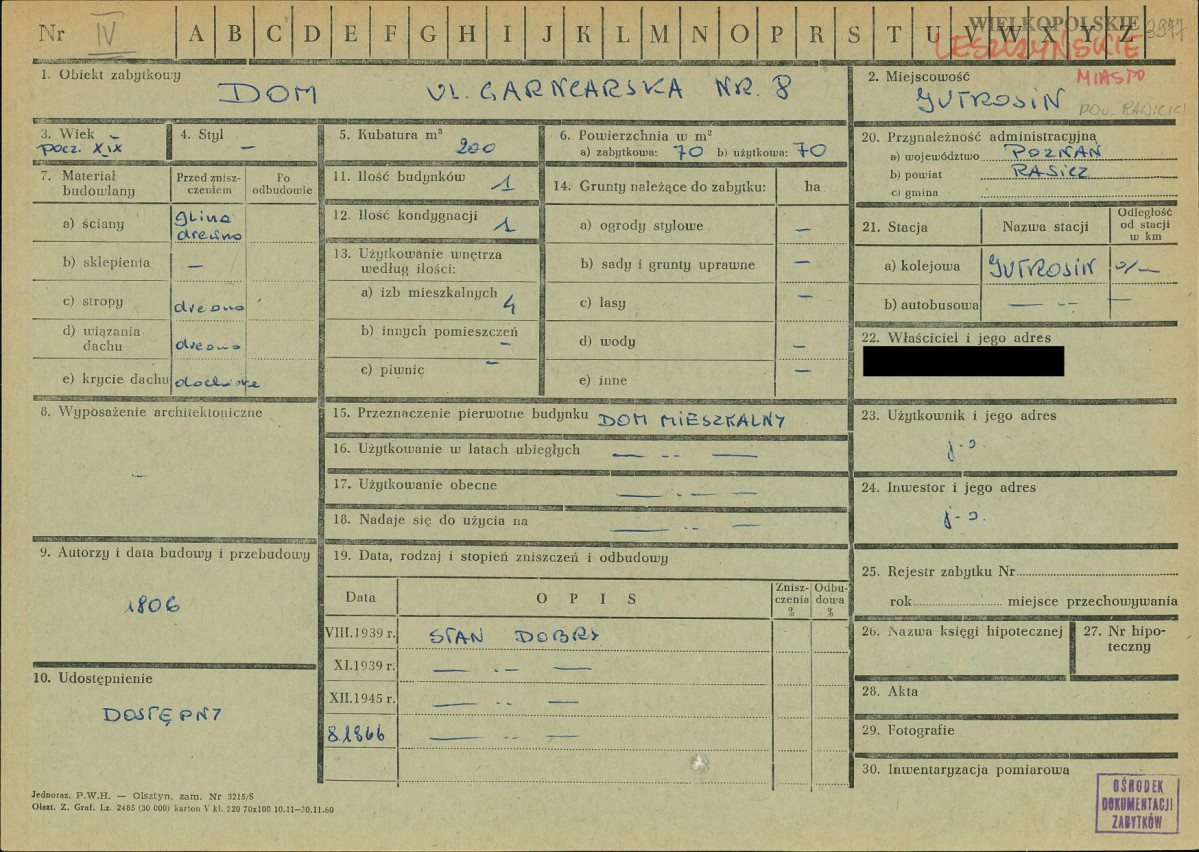 Nr IV A B C D E F G H I J K L M N O P R S T U V W X Y Z
WIELKOPOLSKIE 3977
LESZCZYŃSKIE
MIASTO
1. Obiekt zabytkowy
DOM UL. GARNCARSKA NR. 8
2. Miejscowość
JUTROSIN
3. Wiek
pocz. XIX
4. Styl
—
5. Kubatura m³
200
6. Powierzchnia w m²
a) zabytkowa: 70 b) użytkowa: 70
20. Przynależność administracyjna
a) województwo POZNAŃ
b) powiat RAWICZ
c) gmina
7. Materiał budowlany
Przed zniszczeniem
Po odbudowie
a) ściany glina drewno
b) sklepienia —
c) stropy drewno
d) wiązania dachu drewno
e) krycie dachu dachówka
11. Ilość budynków 1
12. Ilość kondygnacji 1
13. Użytkowanie wnętrza według ilości:
a) izb mieszkalnych 4
b) innych pomieszczeń —
c) piwnic —
14. Grunty należące do zabytku: ha
a) ogrody stylowe —
b) sady i grunty uprawne —
c) lasy —
d) wody —
e) inne —
21. Stacja
Nazwa stacji
Odległość od stacji w km
a) kolejowa JUTROSIN
b) autobusowa — -- —
22. Właściciel i jego adres
8. Wyposażenie architektoniczne
—
15. Przeznaczenie pierwotne budynku DOM MIESZKALNY
16. Użytkowanie w latach ubiegłych — -- —
17. Użytkowanie obecne — -- —
18. Nadaje się do użycia na — -- —
23. Użytkownik i jego adres
j.w.
24. Inwestor i jego adres
j.w.
9. Autorzy i data budowy i przebudowy
1806
19. Data, rodzaj i stopień zniszczeń i odbudowy
Data
OPIS
Zniszczenia %
Odbudowa %
VIII.1939 r. STAN DOBRY
XI.1939 r. — -- —
XII.1945 r. — -- —
— -- —
25. Rejestr zabytku Nr
rok miejsce przechowywania
26. Nazwa księgi hipotecznej
27. Nr hipoteczny
10. Udostępnienie
DOSTĘPNY
28. Akta
29. Fotografie
30. Inwentaryzacja pomiarowa
OŚRODEK
DOKUMENTACJI
ZABYTKÓW
Jednoraz. P.W.H. — Olsztyn, zam. Nr 3215/S
Olszt. Z. Graf. Lz. 2485 (30 000) karton V kl. 220 70x100 10.11—30.11.60